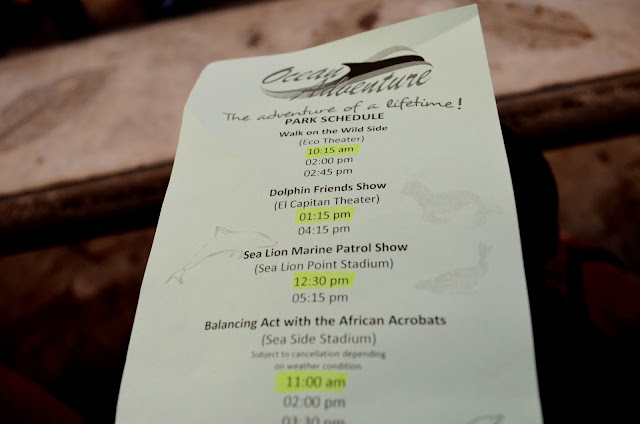 Ocean
Adventure
The adventure of a lifetime!
PARK SCHEDULE
Walk on the Wild Side
(Eco Theater)
10:15 am
02:00 pm
02:45 pm
Dolphin Friends Show
(El Capitan Theater)
01:15 pm
04:15 pm
Sea Lion Marine Patrol Show
(Sea Lion Point Stadium)
12:30 pm
05:15 pm
Balancing Act with the African Acrobats
(Sea Side Stadium)
Subject to cancellation depending
on weather condition
11:00 am
02:00 pm
03:30 pm